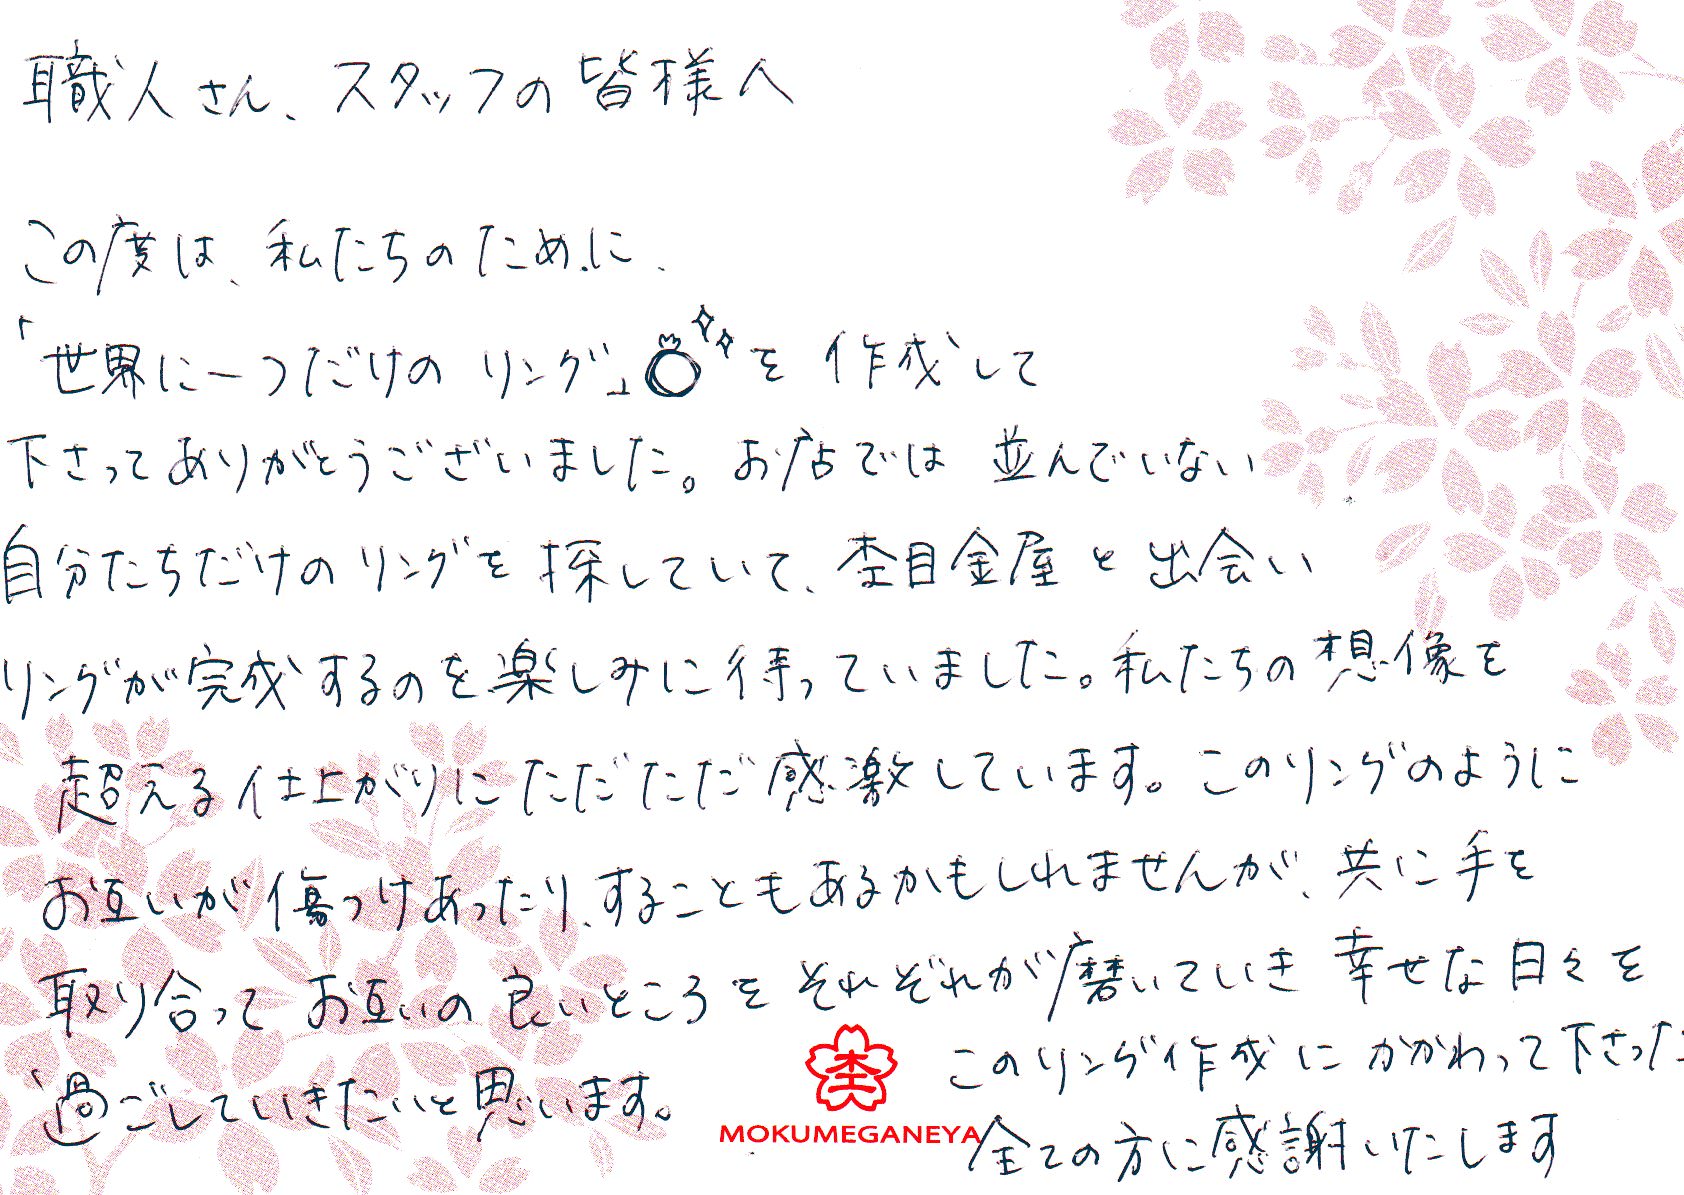 職人さん、スタッフの皆様へ
この度は、私たちのために、
「世界に一つだけの リング」を 作成して
下さってありがとうございました。お店では 並んでいない
自分たちだけのリングを 探していて、杢目金屋と出会い
リングが完成するのを楽しみに待っていました。私たちの想像を
超える仕上がりにただただ感激しています。このリングのように
お互いが傷つけあったり、することもあるかもしれませんが、共に手を
取り合って お互いの良いところをそれぞれが磨いていき 幸せな日々を
過ごしていきたいと思います。
このリング作成にかかわって下さった
全ての方に感謝いたします
杢
MOKUMEGANEYA